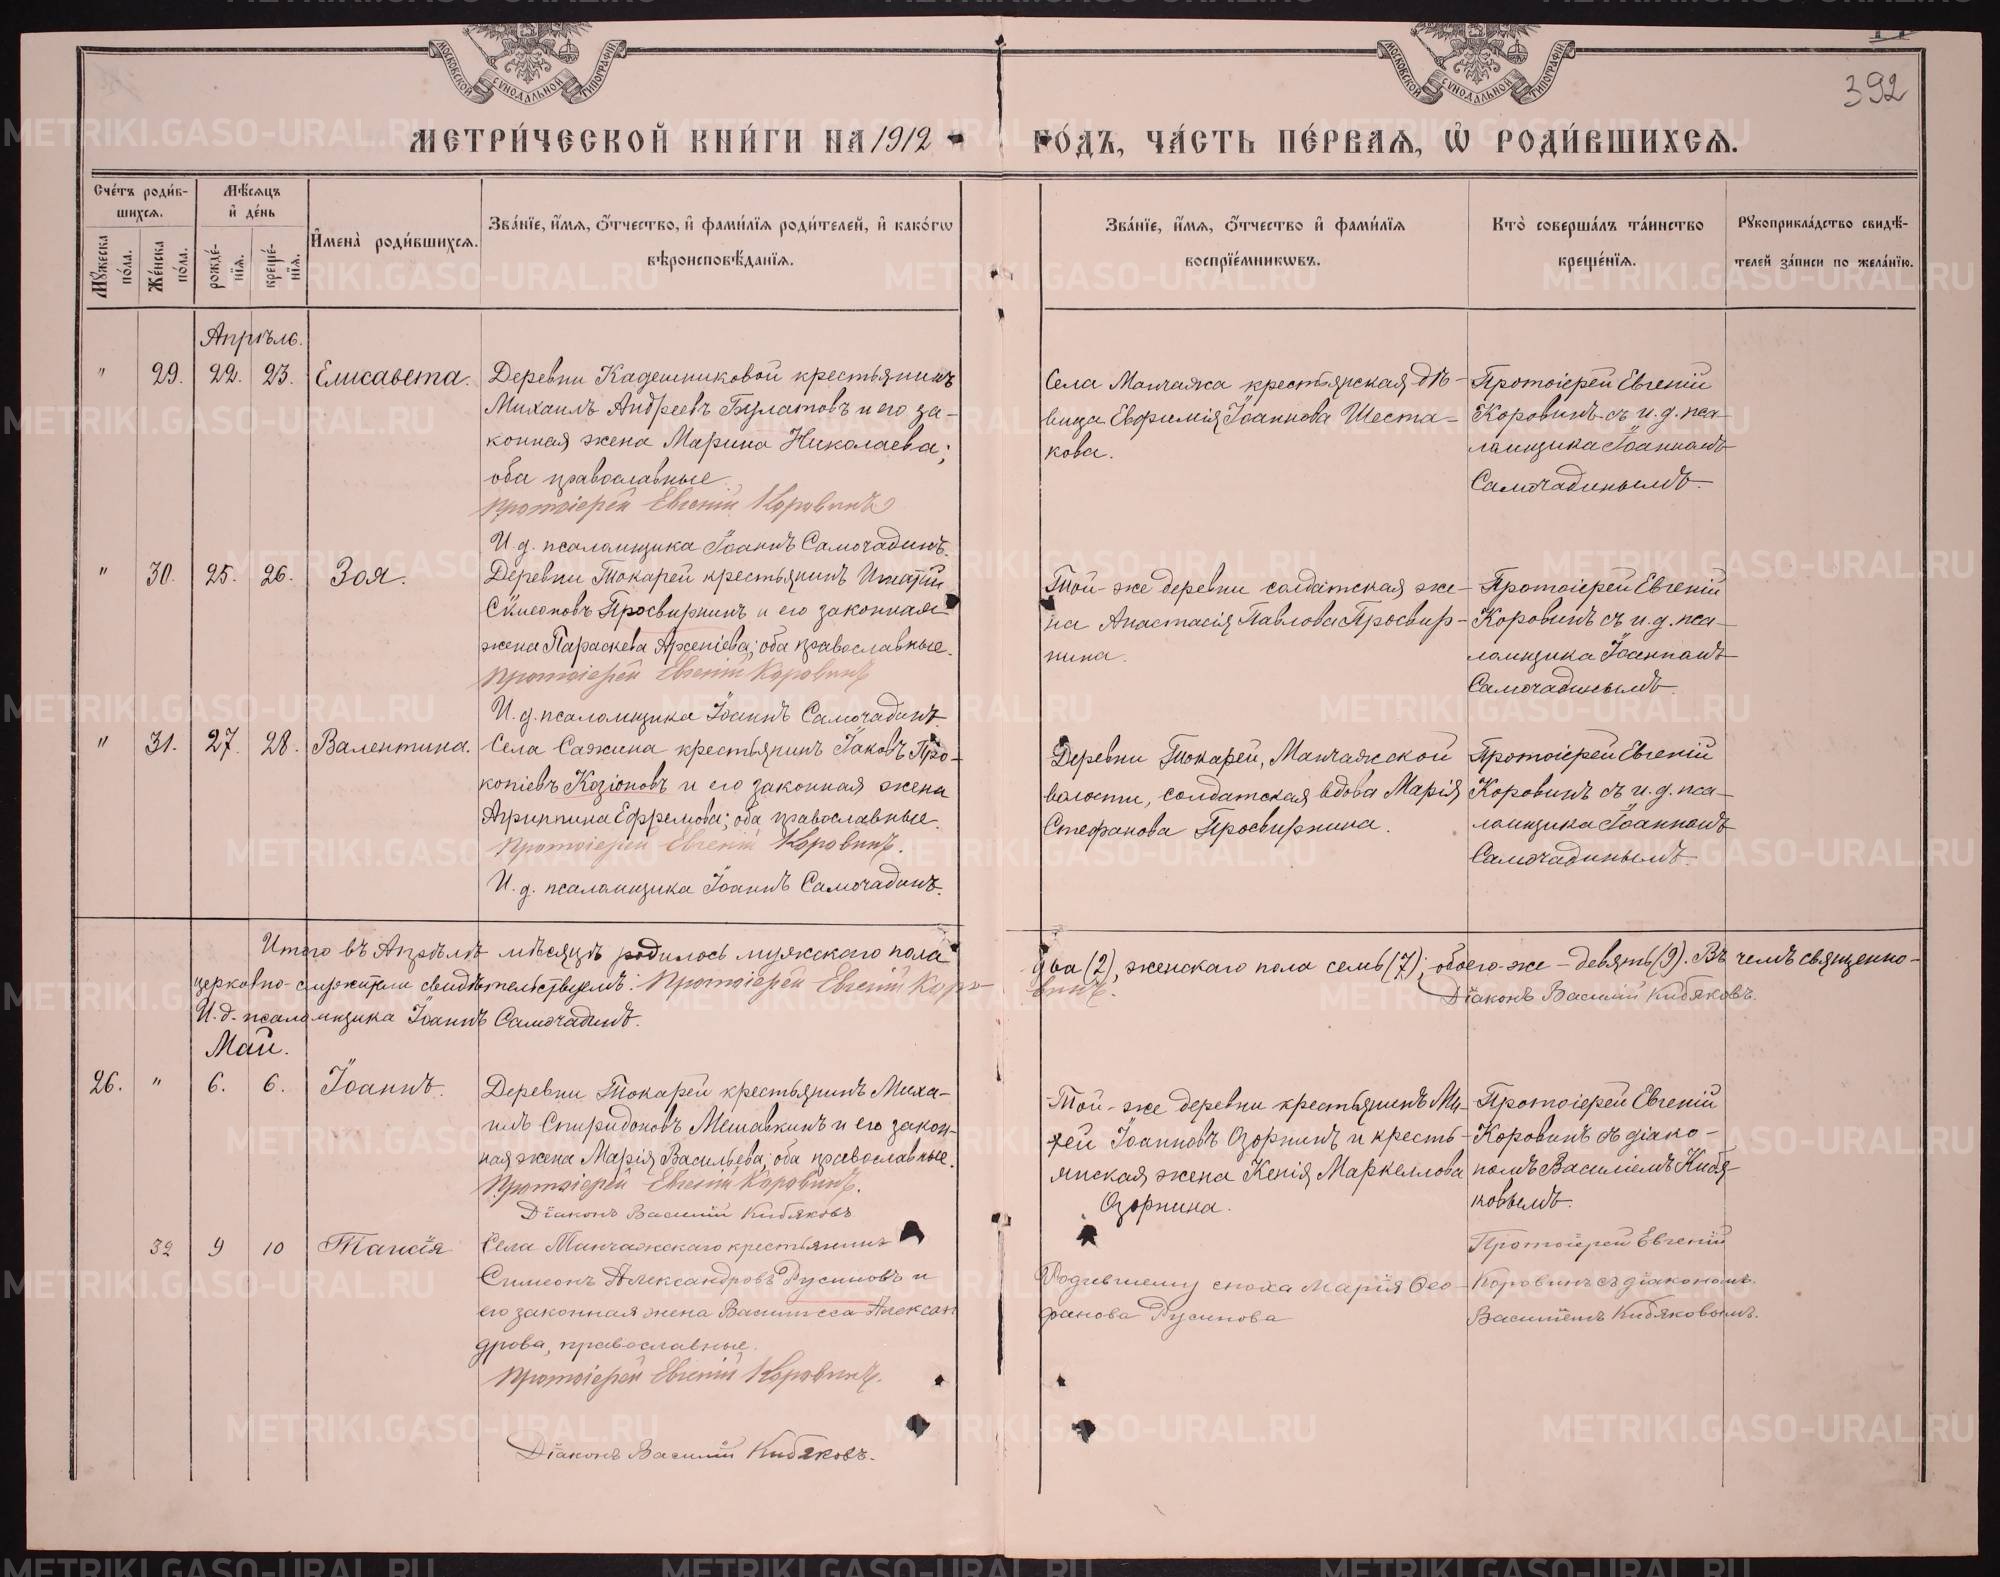 МОСКОВСКОЙ СѴНОДАЛЬНОЙ ТИПОГРАФІИ
МОСКОВСКОЙ СѴНОДАЛЬНОЙ ТИПОГРАФІИ
392
МЕТРИ́ЧЕСКОЙ КНИ́ГИ НА 1912 ГО́ДЪ, ЧА́СТЬ ПЕ́РВАѦ, Ѽ РОДИ́ВШИХСѦ.
Сче́тъ роди́в-
шихсѧ.
Мꙋжеска по́ла.
Же́нска по́ла.
Мѣ́сѧцъ
и҆ де́нь
рожде́-
нїѧ.
креще́-
нїѧ.
И҆мена̀ роди́вшихсѧ.
Зва́нїе, и҆́мѧ, ѻ҆́тчество, и҆ фами́лїѧ роди́телей, и҆ како́гѡ
вѣроисповѣ́данїѧ.
Зва́нїе, и҆́мѧ, ѻ҆́тчество и҆ фами́лїѧ
воспрїе́мникѡвъ.
Кто̀ соверша́лъ та́инство
креще́нїѧ.
Рꙋкоприкла́дство свидѣ́-
телей за́писи по жела́нїю.
Апрѣль.
" 29. 22. 23. Елисавета.
Деревни Кадешниковой крестьянинъ
Михаилъ Андреевъ Булатовъ и его за-
конная жена Марина Николаева;
оба православные
Протоіерей Евгеній Коровинъ
И. д. псаломщика Іоаннъ Самочадинъ.
Села Манчажа крестьянская дѣ-
вица Евфимія Іоаннова Шеста-
кова.
Протоіерей Евгеній
Коровинъ съ и. д. пса-
ломщика Іоанномъ
Самочадинымъ.
" 30. 25. 26. Зоя.
Деревни Токарей крестьянинъ Игнатій
Сѵмеоновъ Просвирнинъ и его законная
жена Параскева Арсеніева; оба православные.
Протоіерей Евгеній Коровинъ
И. д. псаломщика Іоаннъ Самочадинъ.
Той-же деревни солдатская же-
на Анастасія Павлова Просвир-
нина.
Протоіерей Евгеній
Коровинъ съ и. д. пса-
ломщика Іоанномъ
Самочадинымъ.
" 31. 27. 28. Валентина.
Села Сажина крестьянинъ Іаковъ Про-
копіевъ Козіоновъ и его законная жена
Агриппина Ефремова; оба православные.
Протоіерей Евгеній Коровинъ.
И. д. псаломщика Іоаннъ Самочадинъ.
Деревни Токарей, Манчажской
волости, солдатская вдова Марія
Стефанова Просвирнина.
Протоіерей Евгеній
Коровинъ съ и. д. пса-
ломщика Іоанномъ
Самочадинымъ.
Итого въ Апрѣлѣ мѣсяцѣ родилось мужскаго пола два (2), женскаго пола семь (7); обоего-же - девять (9). Въ чемъ священно-
церковно-служители свидѣтельствуемъ: Протоіерей Евгеній Коровинъ. Діаконъ Василій Кибяковъ.
И. д. псаломщика Іоаннъ Самочадинъ.
Май.
26. " 6. 6. Іоаннъ.
Деревни Токарей крестьянинъ Миха-
илъ Спиридоновъ Мешавкинъ и его закон-
ная жена Марія Васильева; оба православные.
Протоіерей Евгеній Коровинъ.
Діаконъ Василій Кибяковъ
Той-же деревни крестьянинъ
Іоанновъ Озорнинъ и кресть-
янская жена Ксенія Маркеллова
Озорнина.
Протоіерей Евгеній
Коровинъ съ діако-
номъ Василіемъ Кибя-
ковымъ.
32 9 10 Таисія
Села Манчажскаго крестьянинъ
Симеонъ Александровъ Русиновъ и
его законная жена Василисса Алексан
дрова, православные.
Протоіерей Евгеній Коровинъ.
Діаконъ Василій Кибяковъ.
Родившему сноха Марія Ѳео-
фанова Русинова
Протоіерей Евгеній
Коровинъ съ діакономъ
Василіемъ Кибяковымъ.
METRIKI.GASO-URAL.RU